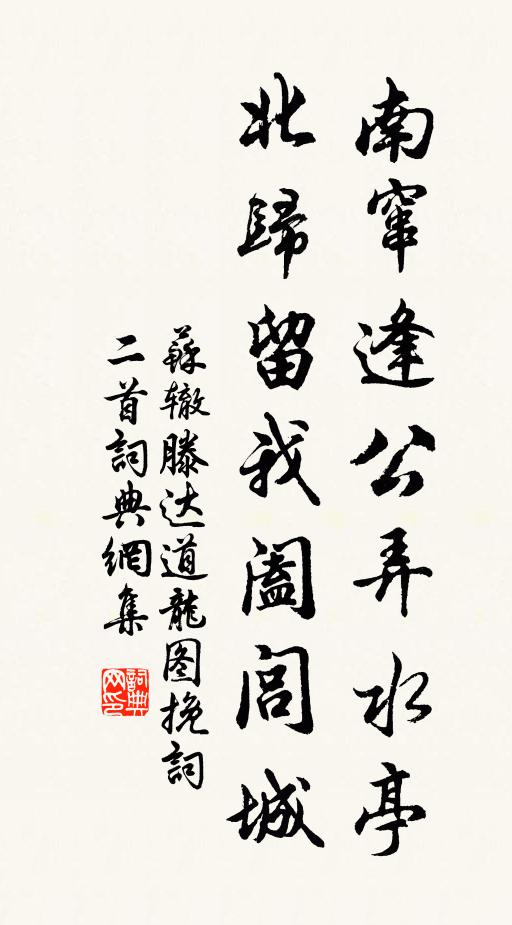 南窜逢公弄水亭
北歸留我阖闾城
蘇辙滕达道龍图挽詞
二首詞典網集
詞典网印